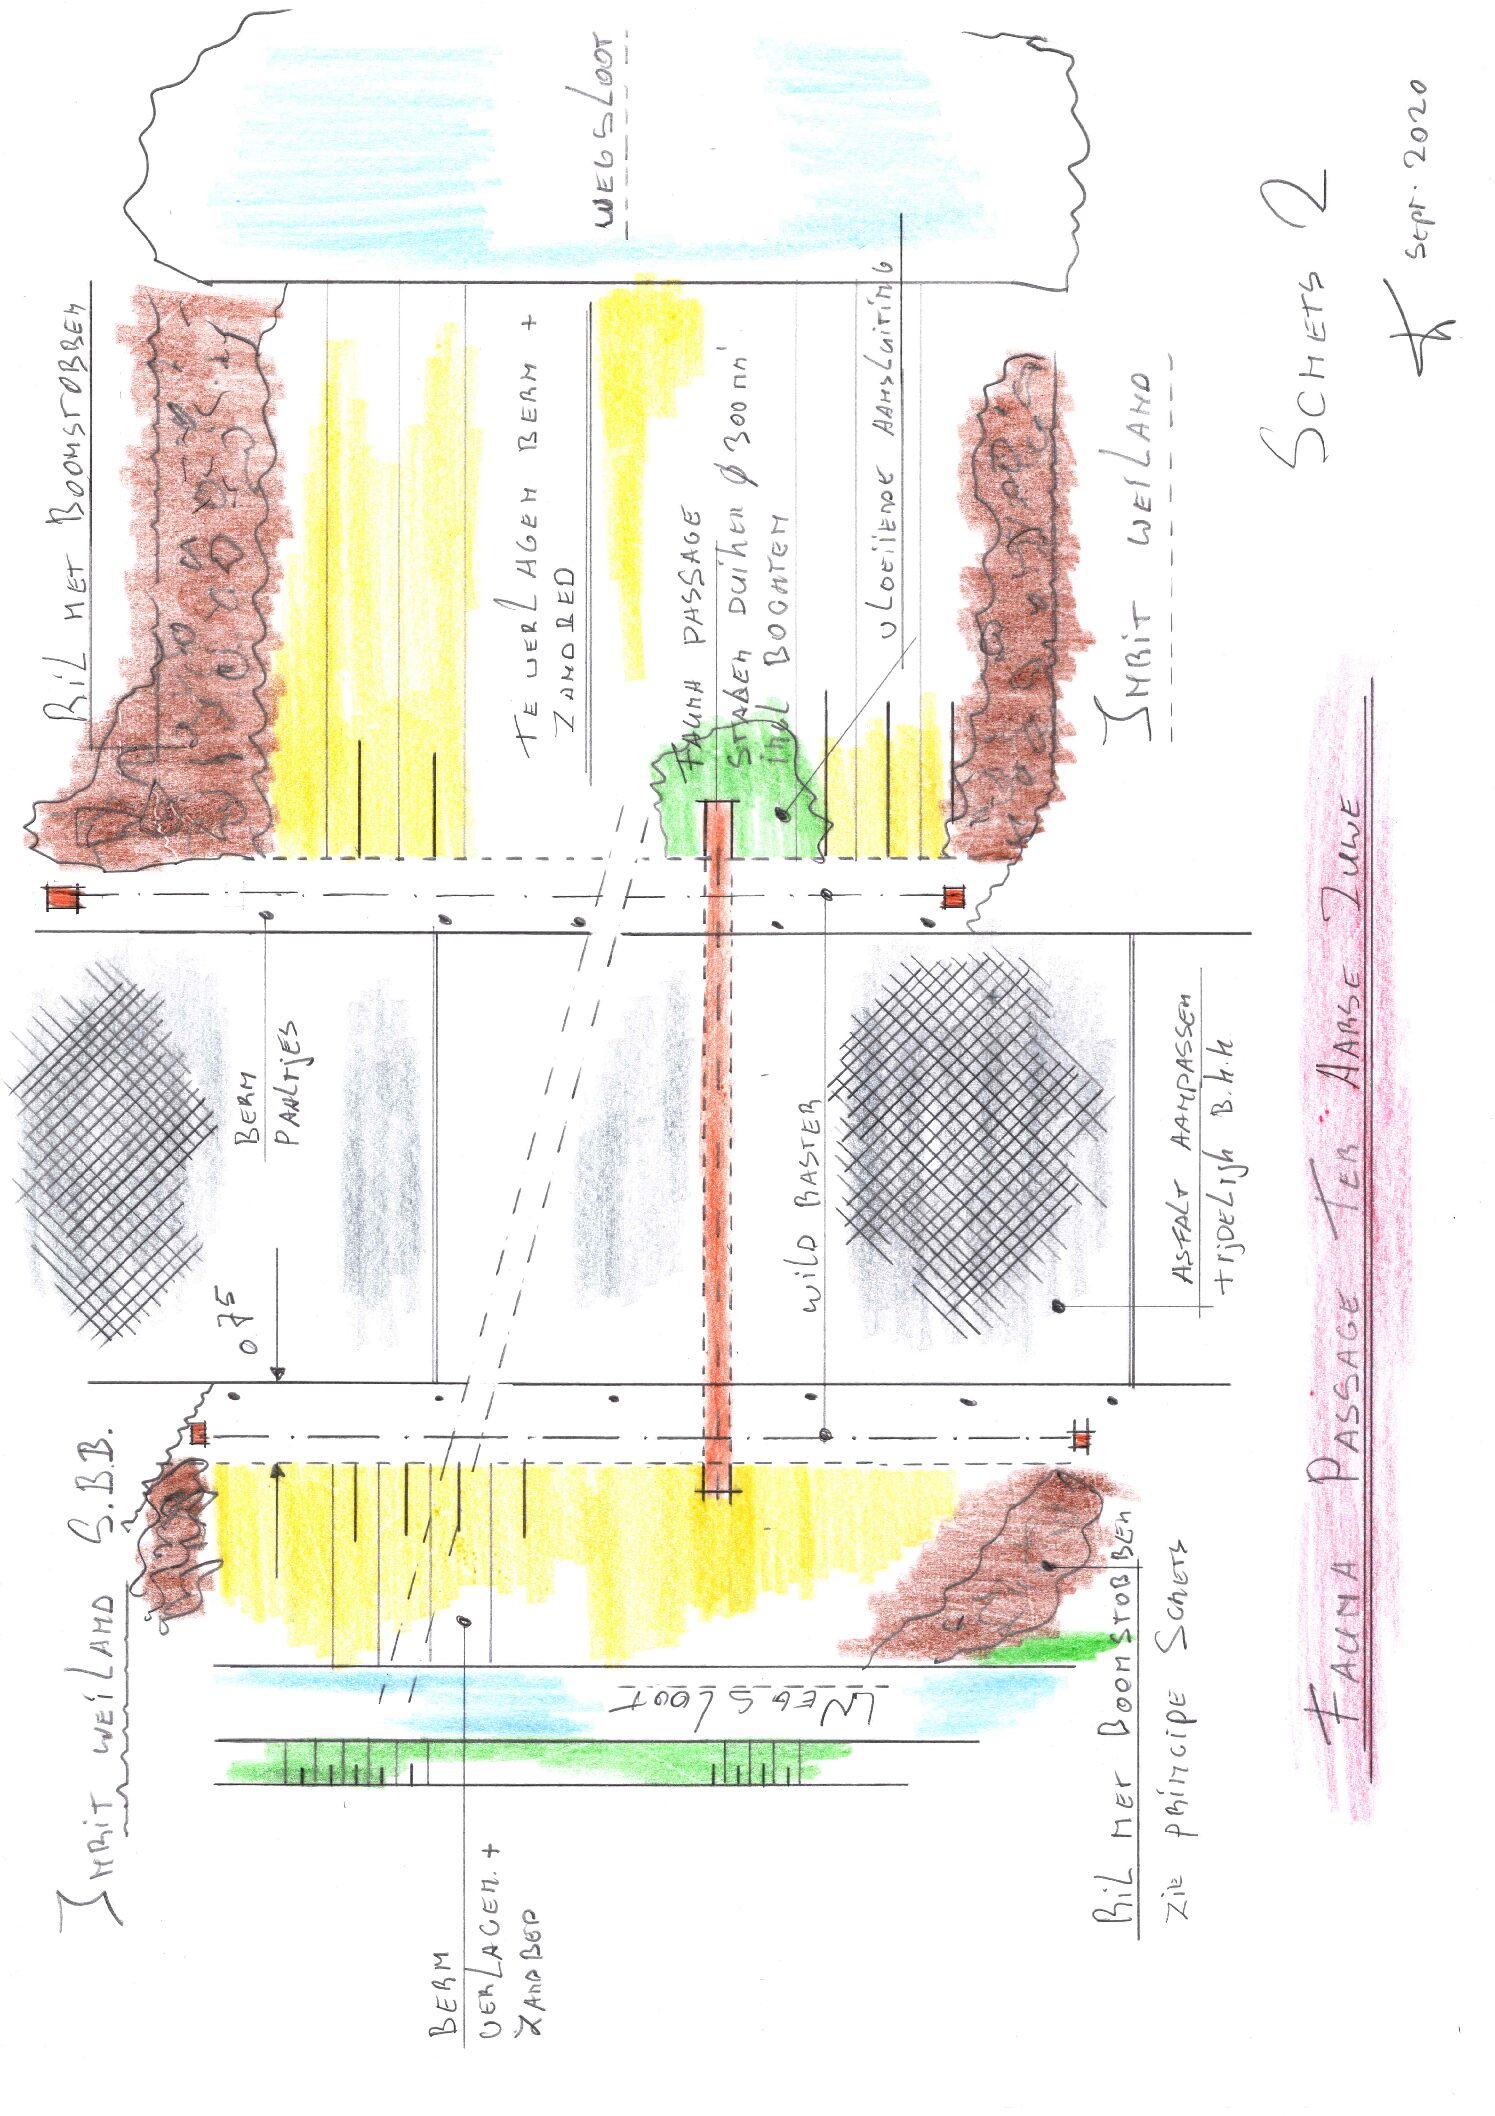 INRIT WEILAND S.B.B.
RIL MET BOOMSTOBBEN
0.75
BERM
PAALTJES
BERM
VERLAGEN +
ZANDBED
TE VERLAGEN BERM +
ZANDBED
WEGSLOOT
WEGSLOOT
FAUNA PASSAGE
STALEN DUIKER Ø 300 mm
incl BOCHTEN
WILD RASTER
VLOEIENDE AANSLUITING
RIL MET BOOMSTOBBEN
ZIE PRINCIPE SCHETS
ASFALT AANPASSEN
+ TIJDELIJK
INRIT WEILAND
SCHETS 2
FAUNA PASSAGE TER AARSE ZUWE
Sept. 2020